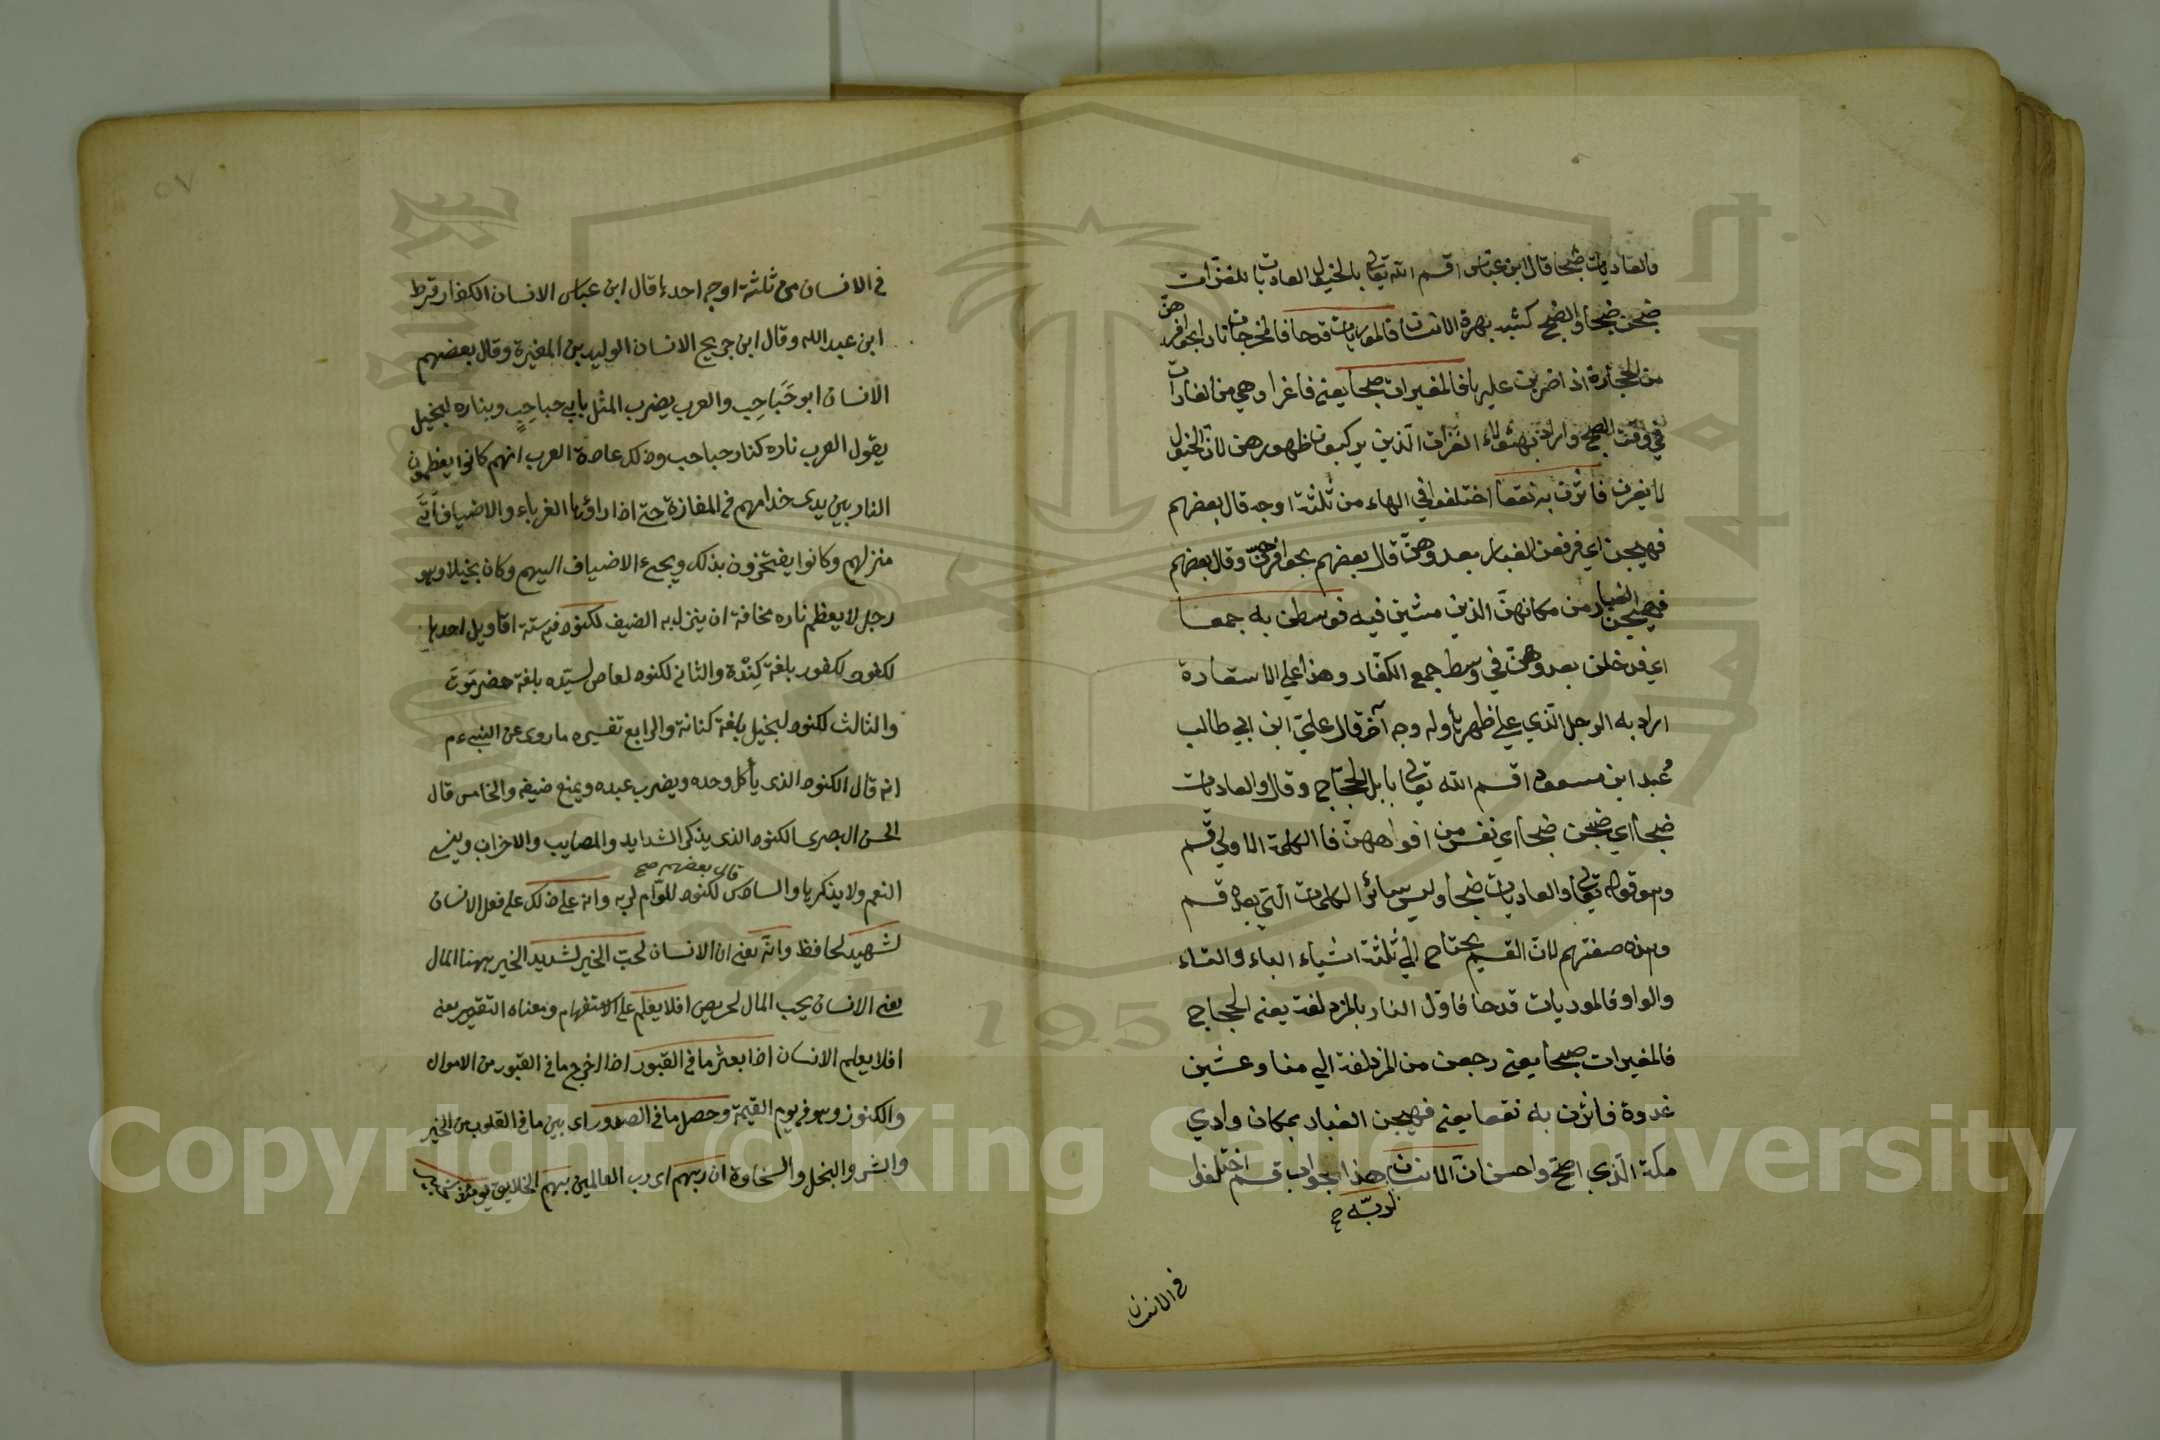 والعاديات ضبحا قال ابن عباس اقسم الله تعالى بالخيول العاديات للغزات
ضبحن ضبحا والضبح كشبه بهرة الانسان فالموريات قدحا فالمخرجات نارا بحوافرهن
من الحجارة اذا ضربن عليها فالمغيرات صبحا يعني فاغرا وهي من الغارات
في وقت الصبح واراد بهؤلاء الغزات الذين يركبون ظهورهن لان الخيول
لا يغرن فاثرن به نقعا اختلفوا في الهاء من ثلثة اوجه قال بعضهم
فهيجن اي فرفعن الغبار بعدوهن قال بعضهم بحوافرهن وقال بعضهم
فهيجن الغبار من مكانهن الذين مشين فيه فوسطن به جمعا
اي فدخلن بعدوهن في وسط جمع الكفار وهذا على الاستعارة
اراد به الرجل الذي على ظهرها وله وجه آخر قال علي ابن ابي طالب
وعبد ابن مسعود اقسم الله تعالى بابل الحجاج وقال والعاديات
ضبحا اي ضبحن ضبحا اي نفس من افواههن فا الكلمة الاولى قسم
وهو قوله تعالى والعاديات ضبحا وليس سائر الكلمات التي بعده قسم
وهذه صفتهم لان القسم يحتاج الي ثلثة اشياء الباء والتاء
والواو فالموريات قدحا فاول النار بالمزدلفة يعني الحجاج
فالمغيرات صبحا يعني رجعن من المزدلفة الي منا وعشين
غدوة فاثرن به نقعا يعني فهيجن الغبار بمكان وادي
مكة الذي اصح واحسن ان الانسان هذا جواب قسم اختلفوا
لربه صح
في الانسان
٥٧
في الانسان من ثلثة اوجه احدها قال ابن عباس الانسان الكفار قرط
ابن عبد الله وقال ابن جريج الانسان الوليد بن المغيرة وقال بعضهم
الانسان ابو حَبَاحِب والعرب يضرب المثل بابي حباحِبٍ وبناره لبخيل
يقول العرب ناره كنار حباحب وذلك عادة العرب انهم كانوا يعظمون
النار بين يدى خدامهم في المفازة حتى اذا راؤها الغرباء والاضياف أتى
منزلهم وكانوا يفتخرون بذلك ويجيء الاضياف اليهم وكان بخيلا وهو
رجل لا يعظم ناره مخافة ان ينزل به الضيف لكنود فيه ستة اقاويل احدها
لكنود لكفور بلغة كِنْدة والثاني لكنود لعاص لسيده بلغة حضرموت
والثالث لكنود لبخيل بلغة كنانة والرابع تفسيره ما روى عن النبي ءم
انه قال الكنود الذى يأكل وحده ويضرب عبده ويمنع ضيفه والخامس قال
الحسن البصرى الكنود الذى يذكر الشدايد والمصايب والاحزاب وينسى
قال بعضهم صح
النعم ولا يذكرها والسادس لكنود للوّام لربه وانه على ذلك على فعل الانسان
لشهيد لحافظ وانّه يعني ان الانسان لحبّ الخير لشديد الخير ههنا المال
يعنى الانسان يحب المال لحريص افلا يعلم على الاستفهام ومعناه التقرير يعنى
افلا يعلم الانسان اذا بعثر ما في القبور اذا اخرج ما في القبور من الاموال
والكنوز وهو في يوم القيمة وحصل ما في الصدور اى بين ما في القلوب من الخير
والشر والبخل والسخاوة ان ربهم اى رب العالمين بهم الخلايق يومئذ
Copyright © King Saud University
1957